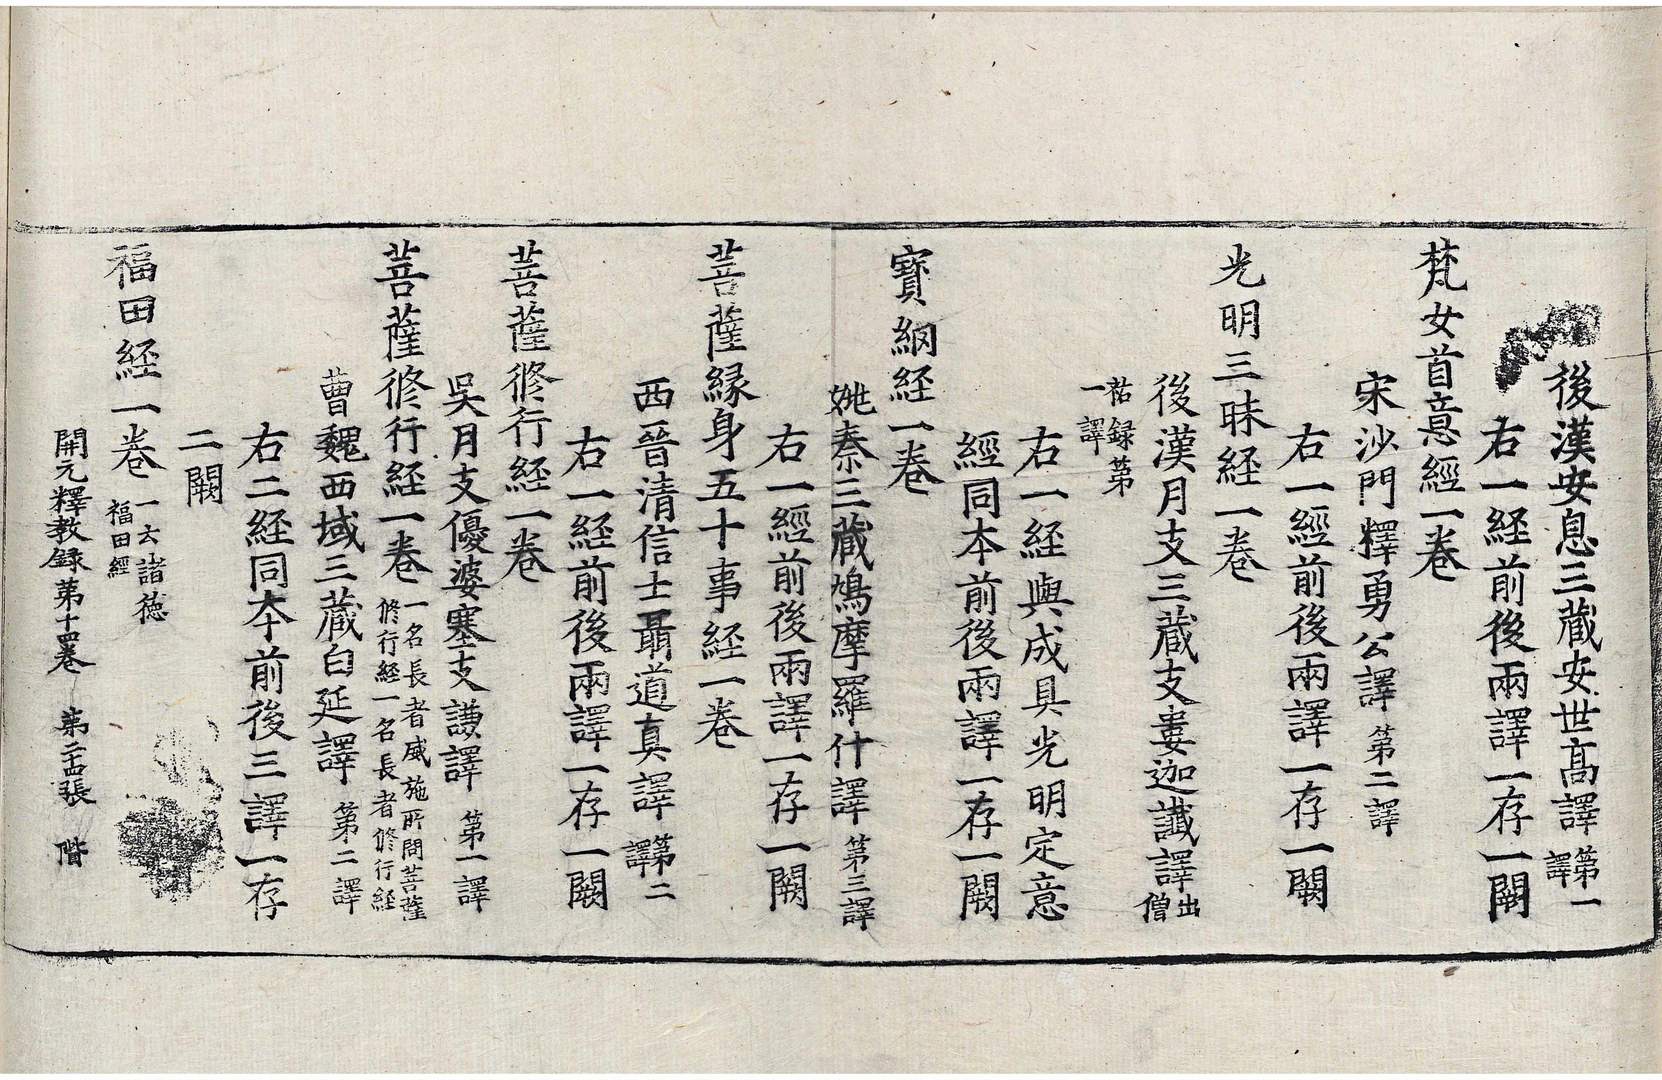 後漢安息三藏安世高譯第一譯
右一経前後兩譯一存一闕
梵女首意經一卷
宋沙門釋勇公譯第二譯
右一經前後兩譯一存一闕
光明三昧経一卷
後漢月支三藏支婁迦讖譯出僧
祐録第一譯
右一経與成具光明定意
經同本前後兩譯一存一闕
寶網経一卷
姚秦三藏鳩摩羅什譯第三譯
右一經前後兩譯一存一闕
菩薩緣身五十事経一卷
西晉清信士聶道真譯第二譯
右一経前後兩譯一存一闕
菩薩修行経一卷
吳月支優婆塞支謙譯第一譯
菩薩修行経一卷一名長者威施所問菩薩修行経一名長者修行経
曹魏西域三藏白延譯第二譯
右二経同本前後三譯一存
二闕
福田経一卷一云諸徳福田經
開元釋教録第十四卷 第二十四張 階